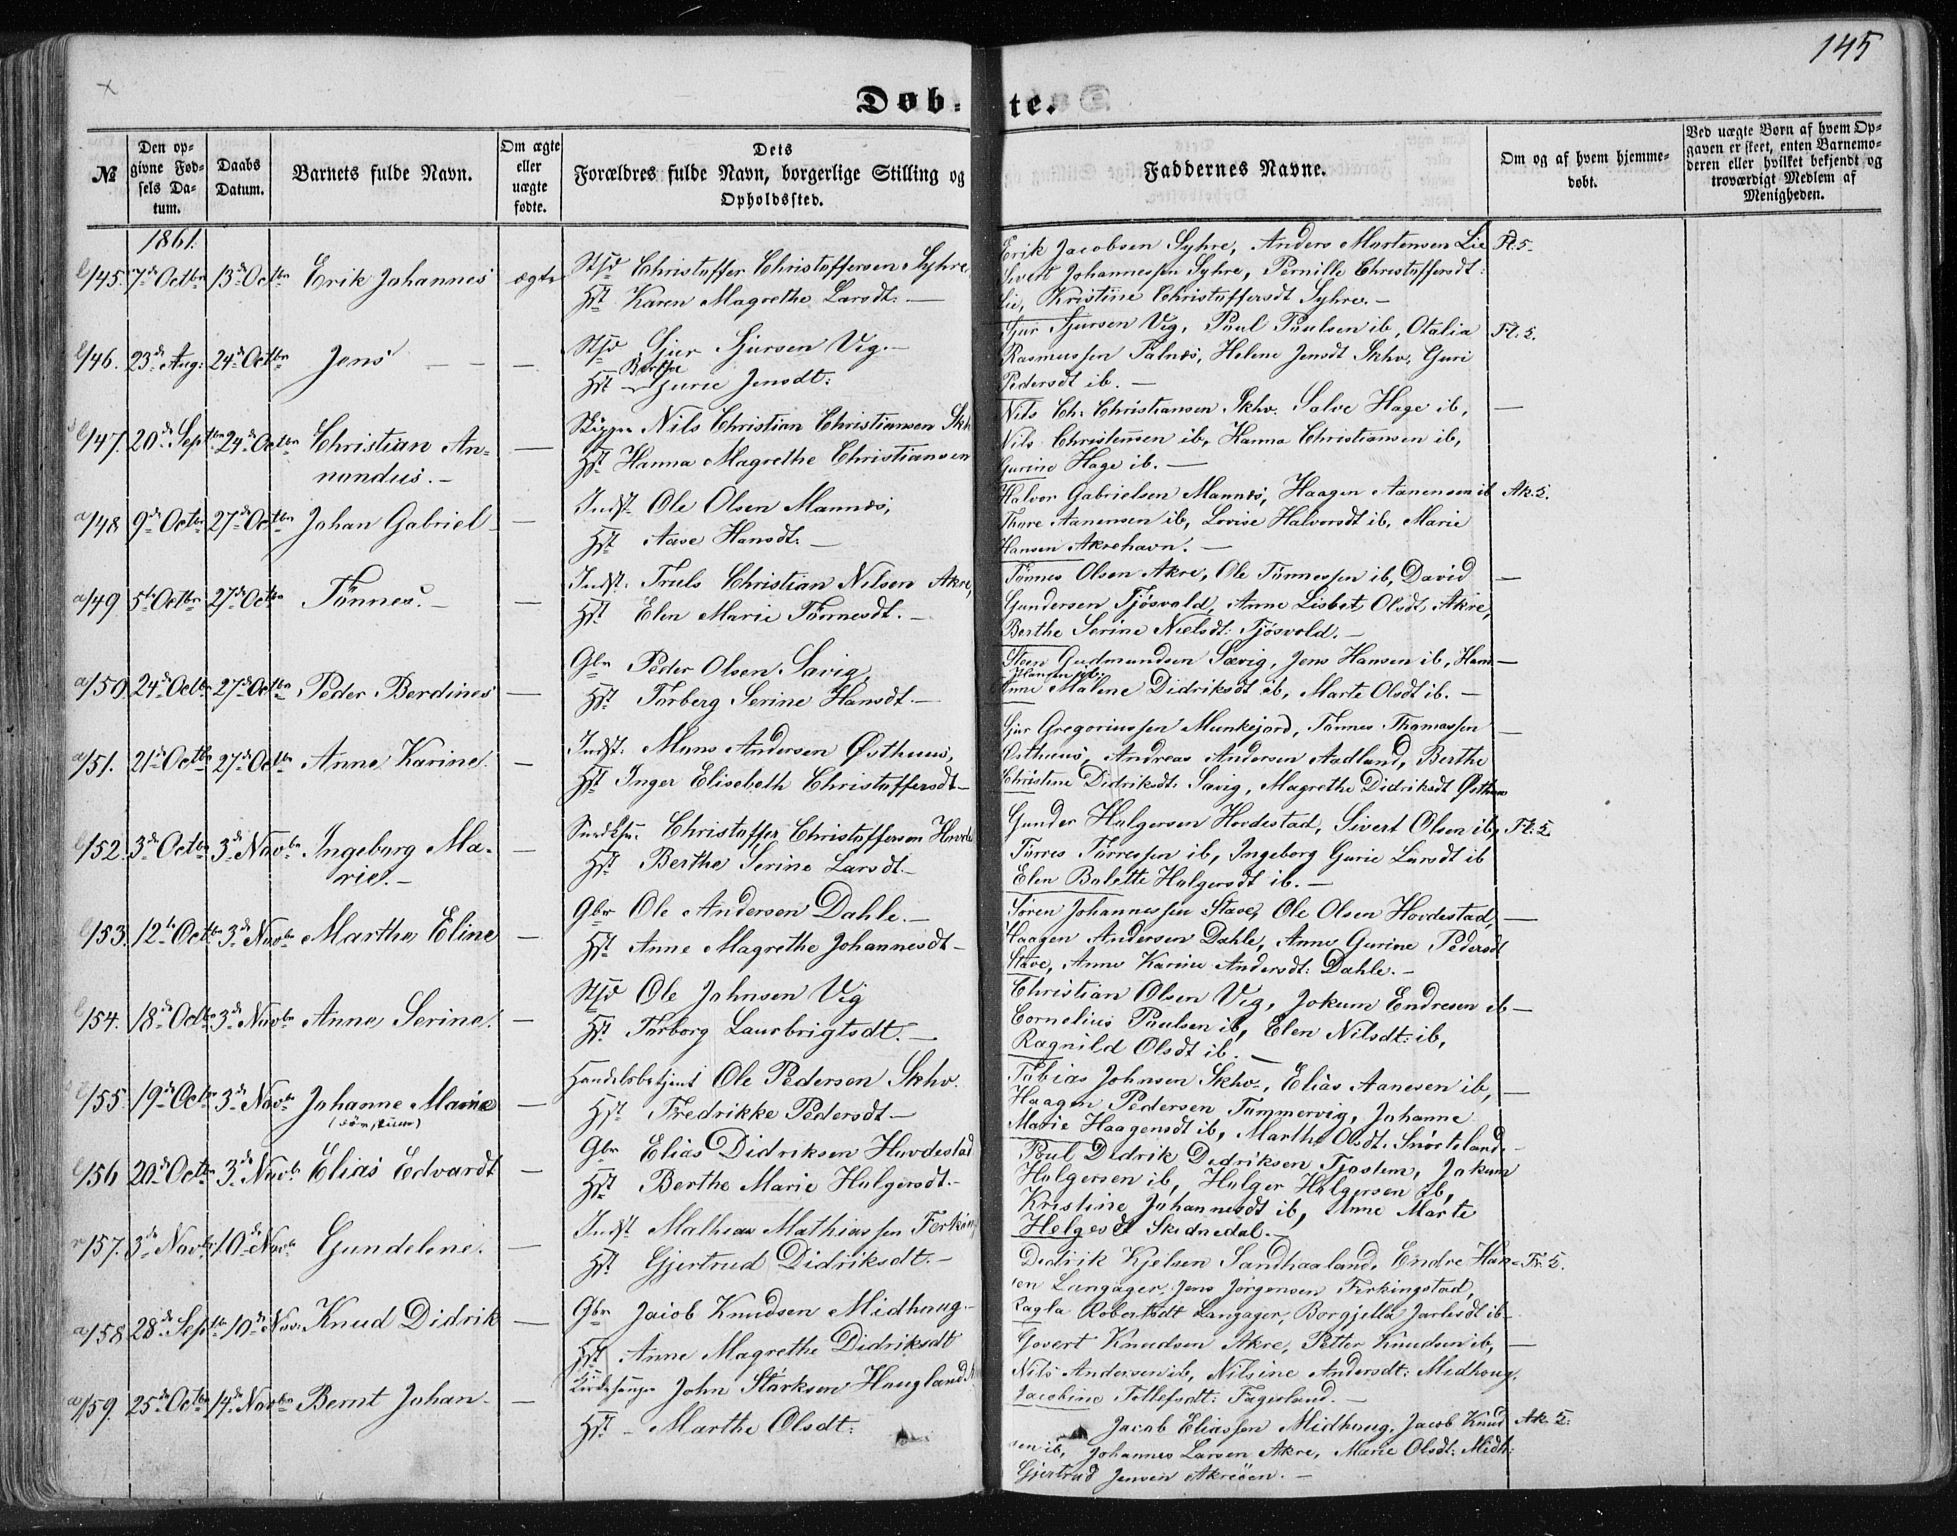 145
Døb-te.
№
Den op-
givne Fød-
sels Da-
tum.
Daabs
Datum.
Barnets fulde Navn.
Om ægte
eller
uægte
fødte.
Dets
Forældres fulde Navn, borgerlige Stilling og
Opholdssted.
Faddernes Navne.
Om og af hvem hjemme-
døbt.
Ved uægte Børn af hvem Op-
gaven er skeet, enten Barnemo-
deren eller hvilket bekjendt og
troværdigt Medlem af
Menigheden.
1861.
145. 7de Octbr 13de Octbr Erik Johannes ægte
Christoffer Christoffersen Syhre
Hst Karen Magrethe Larsdt. —
Erik Jacobsen Syhre, Anders Mortensen Lie
Sivert Johannessen Syhre, Pernille Christoffersdt:
Lie, Kristine Christoffersdt Syhre. —
146. 23de Aug: 24de Octbr Jens — —
Sjur Sjursen Vig. —
Hst Gurie Jensdt:
Sjur Sjursen Vig, Poul Poulsen ib, Otalia
Rasmussen Falnæs, Helene Jensdt Skhv. Guri
Pedersdt ib. —
147. 20de Septbr 24de Octbr Christian An-
nandus. — —
Skipper Nils Christian Christiansen Skh
Hst Hanna Magrethe Christiansen
Nils Ch: Christiansen Skhv. Salve Hage ib, —
Nils Christensen ib, Hanna Christiansen ib,
Gurine Hage ib. —
a/48 9de Octbr 27de Octbr Johan Gabriel —
Indst. Ole Olsen Mannes,
Hst Aase Hansdt. —
Halvor Gabrielsen Mannes, Haagen Aanensen ib
Thore Aanensen ib, Lovise Halvorsdt ib, Marie
Hansen Akrehavn. —
a/49 5te Octbr 27de Octbr Tönnes. — —
Indst: Truls Christian Nilsen Akre,
Hst Elen Marie Tönnesdt. —
Tönnes Olsen Akre, Ole Tönnessen ib, David —
Gundersen Tjösvold, Anne Lisbet Olsdt Akre,
Berthe Serine Nielsdt: Tjösvold. —
a/50. 24de Octbr 27de Octbr Peder Berdines —
Gbr Peder Olsen Savig,
Hst Torberg Serine Hansdt. —
Steen Gudmundsen Sævig, Jens Hansen ib, Hans —
Hansen ib.
Anne Malene Didriksdt ib, Marte Olsdt ib. —
a/51. 21de Octbr 27de Octbr Anne Karine. —
Indst: Mons Andersen Østhuus,
Hst Inger Elisebeth Christoffersdt —
Sjur Gregoriussen Munkejord, Tönnes Thomassen —
Østhuus, Andreas Andersen Aadland, Berthe
Christine Didriksdt: Savig, Magrethe Didriksdt Østhuus
152. 3de Octbr 3de Novbr Ingeborg Ma-
rie. — —
Christoffer Christoffersen Hovde
Hst Berthe Serine Larsdt. —
Gunder Holgersen Hovdestad, Sivert Olsen ib,
Torres Torressen ib, Ingeborg Gurie Larsdt ib
Elen Bolette Holgersdt ib. —
153. 12te Octbr 3de Novbr Marthe Eline —
Gbr Ole Andersen Dahle. —
Hst Anne Magrethe Johannesdt —
Sören Johannessen Stave, Ole Olsen Hovdestad, —
Haagen Andersen Dahle, Anne Gurine Pedersdt
Stave, Anne Karine Andersdt: Dahle. —
154. 18de Octbr 3de Novbr Anne Serine. —
Ole Johnsen Vig
Hst Torborg Laurbrigtsdt. —
Christian Olsen Vig, Jokum Endresen ib —
Cornelius Poulsen ib, Elen Nilsdt: ib,
Ragnild Olsdt ib. —
155. 19de Octbr 3de Novbr Johanne Marie —
Handelsbetjent Ole Pedersen Skhv.
Hst Fredrikke Pedersdt —
Tobias Johnsen Skhv., Elias Aanesen ib, —
Haagen Pedersen Tommervig, Johanne
Marie Haagensdt ib, Marthe Olsdt. Snörteland. —
156 20de Octbr 3de Novbr Elias Edvardt —
Gbr Elias Didriksen Hovdestad
Hst Berthe Marie Holgersdt. —
Poul Didrik Didriksen Tjostem, Jokum
Holgersen ib, Holger Holgersen ib,
Kristine Johannesdt ib, Anne Marte
Helgesdt Skednedal. —
157. 3de Novbr 10de Novbr Gundelene. —
Indst Mathias Mathiassen Ferking
Hst Gjertrud Didriksdt. —
Didrik Kjelsen Sandhaaland, Endre Han-
sen Langager, Jens Jörgensen Ferkingstad,
Ragla Robertsdt Langager, Borgjella Jarlsdt ib —
a/158 28de Septbr 10de Nov. Knud Didrik —
Gbr Jacob Knudsen Midhaug —
Hst Anne Magrethe Didriksdt
Govert Knudsen Akre, Petter Knudsen ib, —
Nils Andersen ib, Nilsine Andersdt: Midhoug,
Jacobine Tollefsdt: Fagerland. —
159. 25de Octbr 14de Novbr Bernt Johan. —
Kirkesanger John Störksen Haugland
Hst — Marthe Olsdt:
Jacob Eliassen Midhoug, Jacob Knud Ak. 2.
sen ib, Johannes Larsen Akre, Marie Olsdt. Midh:
Gjertrud Jensen Akreöen. —